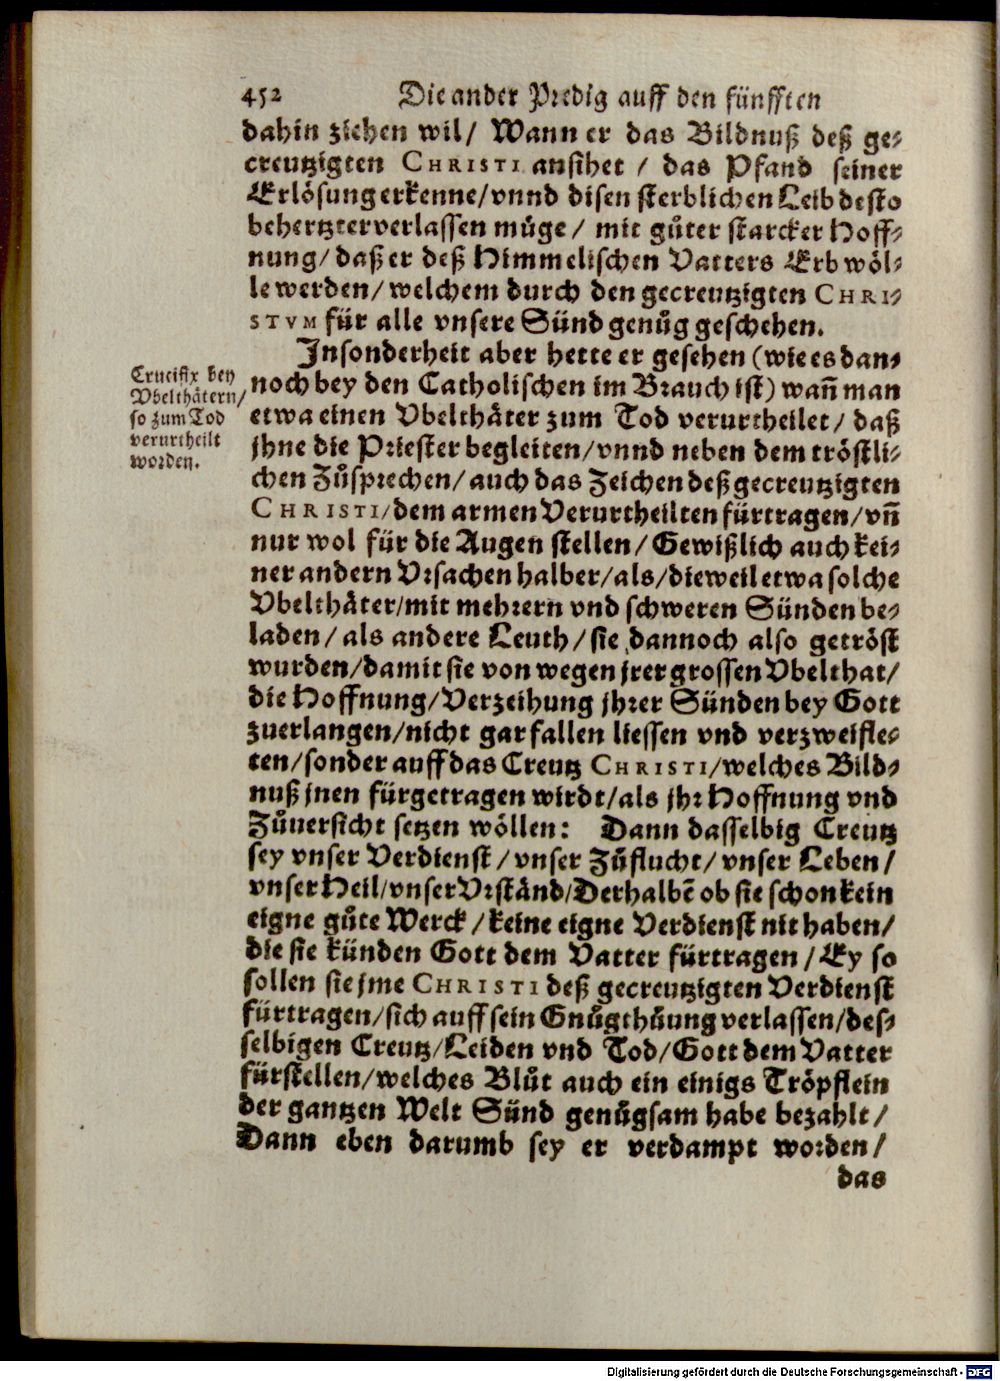 452 Die ander Predig auff den fünfften
dahin ziehen wil/ Wann er das Bildnuß deß ge-
creutzigten CHRISTI ansihet / das Pfand seiner
Erlösung erkenne/vnnd disen sterblichen Leib desto
behertzter verlassen müge/ mit gůter starcker Hoff-
nung/daß er deß Himmelischen Vatters Erb wöl-
le werden/welchem durch den gecreutzigten CHRI-
STVM für alle vnsere Sünd genůg geschehen.
Insonderheit aber hette er gesehen (wie es dan-
noch bey den Catholischen im Brauch ist) wañ man
etwa einen Vbelthäter zum Tod verurtheilet/ daß
jhne die Priester begleiten/vnnd neben dem tröstli-
chen Zůsprechen/auch das Zeichen deß gecreutzigten
CHRISTI/dem armen Verurtheilten fürtragen/vñ
nur wol für die Augen stellen/Gewißlich auch kei-
ner andern Vrsachen halber/als/dieweil etwa solche
Vbelthäter/mit mehrern vnd schweren Sünden be-
laden/als andere Leuth/sie dannoch also getröst
wurden/damit sie von wegen jrer grossen Vbelthat/
die Hoffnung/Verzeihung jhrer Sünden bey Gott
zuerlangen/nicht gar fallen liessen vnd verzweifle-
ten/sonder auff das Creutz CHRISTI/welches Bild-
nuß jnen fürgetragen wirdt/als jhr Hoffnung vnd
Zůuersicht setzen wöllen: Dann dasselbig Creutz
sey vnser Verdienst/vnser Zůflucht/vnser Leben/
vnser Heil/vnser Vrständ/Derhalbē ob sie schon kein
eigne gůte Werck/keine eigne Verdienst nit haben/
die sie künden Gott dem Vatter fürtragen/Ey so
sollen sie jme CHRISTI deß gecreutzigten Verdienst
fürtragen/sich auff sein Gnůgthůung verlassen/des-
selbigen Creutz/Leiden vnd Tod/Gott dem Vatter
fürstellen/welches Blůt auch ein einigs Tröpflein
der gantzen Welt Sünd genůgsam habe bezahlt/
Dann eben darumb sey er verdampt worden/
das
Crucifix bey
Vbelthätern/
so zum Tod
verurtheilt
worden.
Digitalisierung gefördert durch die Deutsche Forschungsgemeinschaft - DFG